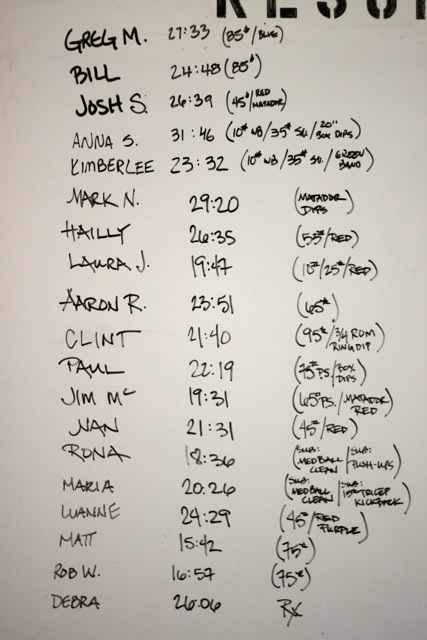 RESU
GREG M. 27:33 (85#/BLUE)
BILL 24:48 (85#)
JOSH S. 26:39 (45#/RED MATADOR)
ANNA S. 31:46 (10# WB/35# SU./20" BOX DIPS)
KIMBERLEE 23:32 (10# WB/35# SU./GREEN BAND)
MARK N. 29:20 (MATADOR DIPS)
HAILLY 26:35 (55#/RED)
LAURA J. 19:47 (10#/25#/RED)
AARON R. 23:51 (65#)
CLINT 21:40 (95#/3/4 ROM RING DIP)
PAUL 22:19 (75# PS./BOX DIPS)
JIM Mc 19:31 (65# PS./MATADOR RED)
NAN 21:31 (45#/RED)
RONA 18:36 (SUB: MEDBALL CLEAN/SUB: PUSH-UPS)
MARIA 20:26 (SUB: MEDBALL CLEAN/SUB: 15# TRICEP KICKBACK)
LUANNE 24:29 (45#/RED PURPLE)
MATT 15:42 (75#)
ROB W. 16:57 (75#)
DEBRA 26:06 Rx